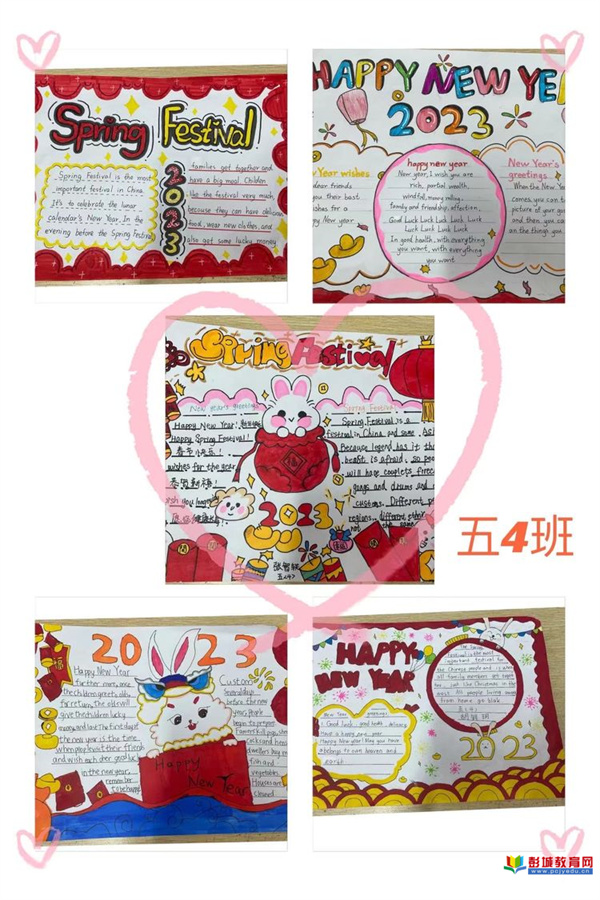 Spring Festival
Spring Festival is the most
important festival in China.
It's to celebrate the lunar
calendar's New Year. In the
evening before the Spring Festival
2023
families get together and
have a big meal.
the the festival very much,
because they can have delicious
food, wear new clothes, and
also get some lucky money
HAPPY NEW YEA
2023
Year wishes
dear friends
you their best
wishes for a
happy New year.
happy new year
New year, I wish you are
rich, partial wealth,
windfall, money rolling,
family and friendship, affection,
Good Luck Luck Luck Luck Luck
Luck Luck Luck Luck
In good health, with everything
you want, with everything
you want
New Year's
greetings
When the New
comes, you can
picture of your
and then you ca
on the things you
Spring Festival
New year's greetings
Happy New Year!
Happy Spring Festival!
春节快乐!
wishes for the year
恭贺新禧!
Spring Festival
Spring Festival is a
festival in China and some
Because legend has it
beast is afraid, so
will hang couplets,
gongs and drums and
customs. Different
regions, different
not the same
2023
五(4)
五4班
2023
Happy New Year
the children greet the elders
for return, The olds will
give the children lucky
money, and last The first day of
the new year is the time
when people visit their friends
and wish each other good luck
in the new year.
remember
to be happy
Custom
Several days
before the new
year, people
begin to prepare
fish and
vegetables.
Houses are
cleaned
Happy
New Year
HAPPY
NEW YEAR
festival is the most
important festival for
the Chinese people and is when
all family members get together
just like Christmas in the
west. All people living away
from home go back
New Year greetings
Good luck and
Have a happy new year
Happy New year! May you have
belongs to own heaven and
earth
2023
彭城教育网
www.pcjyedu.cn